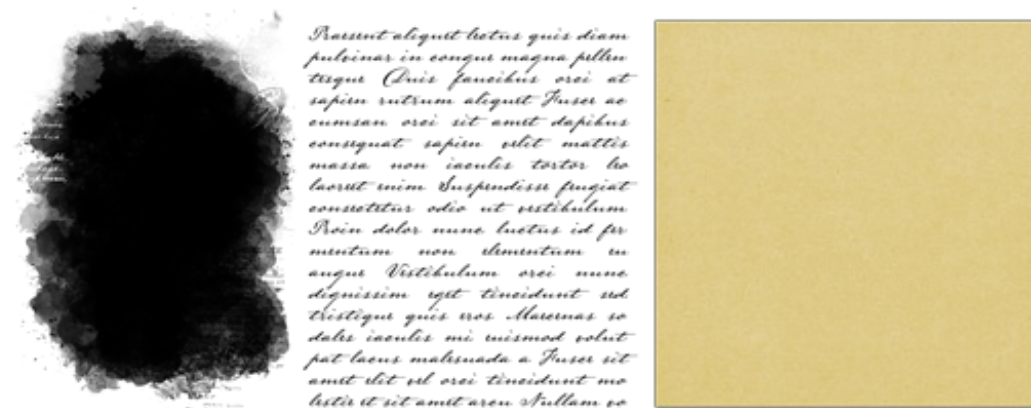 Praesent aliquet lectus quis diam
pulvinar in congue magna pellen
tesque Duis faucibus orci at
sapien rutrum aliquet Fusce ac
cumsan orci sit amet dapibus
consequat sapien velit mattis
massa non iaculis tortor leo
laoreet enim Suspendisse feugiat
consectetur odio ut vestibulum
Proin dolor nunc luctus id fer
mentum non elementum eu
augue Vestibulum orci nunc
dignissim eget tincidunt sed
tristique quis eros Maecenas so
dales iaculis mi euismod volut
pat lacus malesuada a Fusce sit
amet elit vel orci tincidunt mo
lestie et sit amet arcu Nullam vo